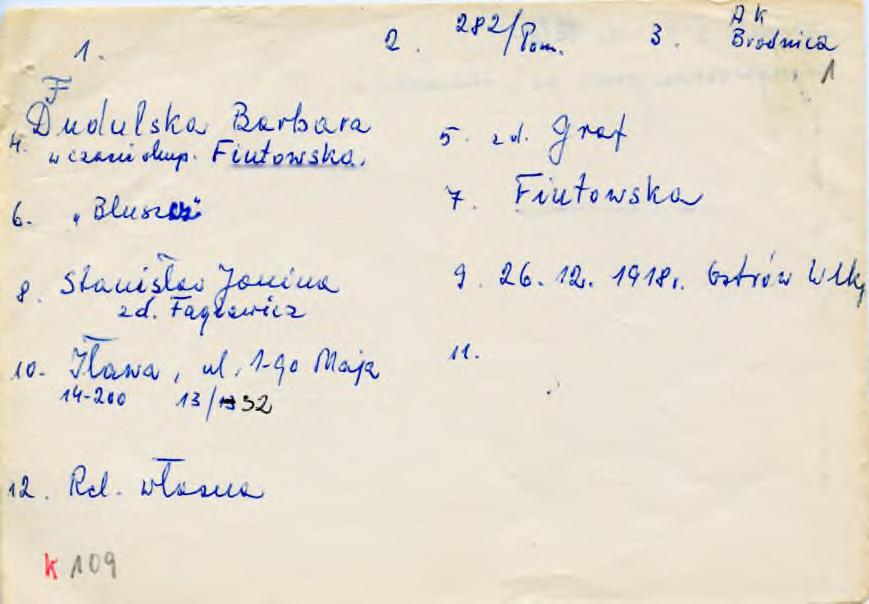 1.
2. 282/Pom.
3. AK Brodnica
1
F
4. Dudulska Barbara
w czasie okup. Fiutowska.
5. zd. Graf
6. „Bluszcz"
7. Fiutowska
8. Stanisław Janina
zd. Fągiewicz
9. 26.12.1918r. Ostrów Wlkp
10. Iława, ul. 1-go Maja
14-200 13/32
11.
12. Rel. własna
k 109